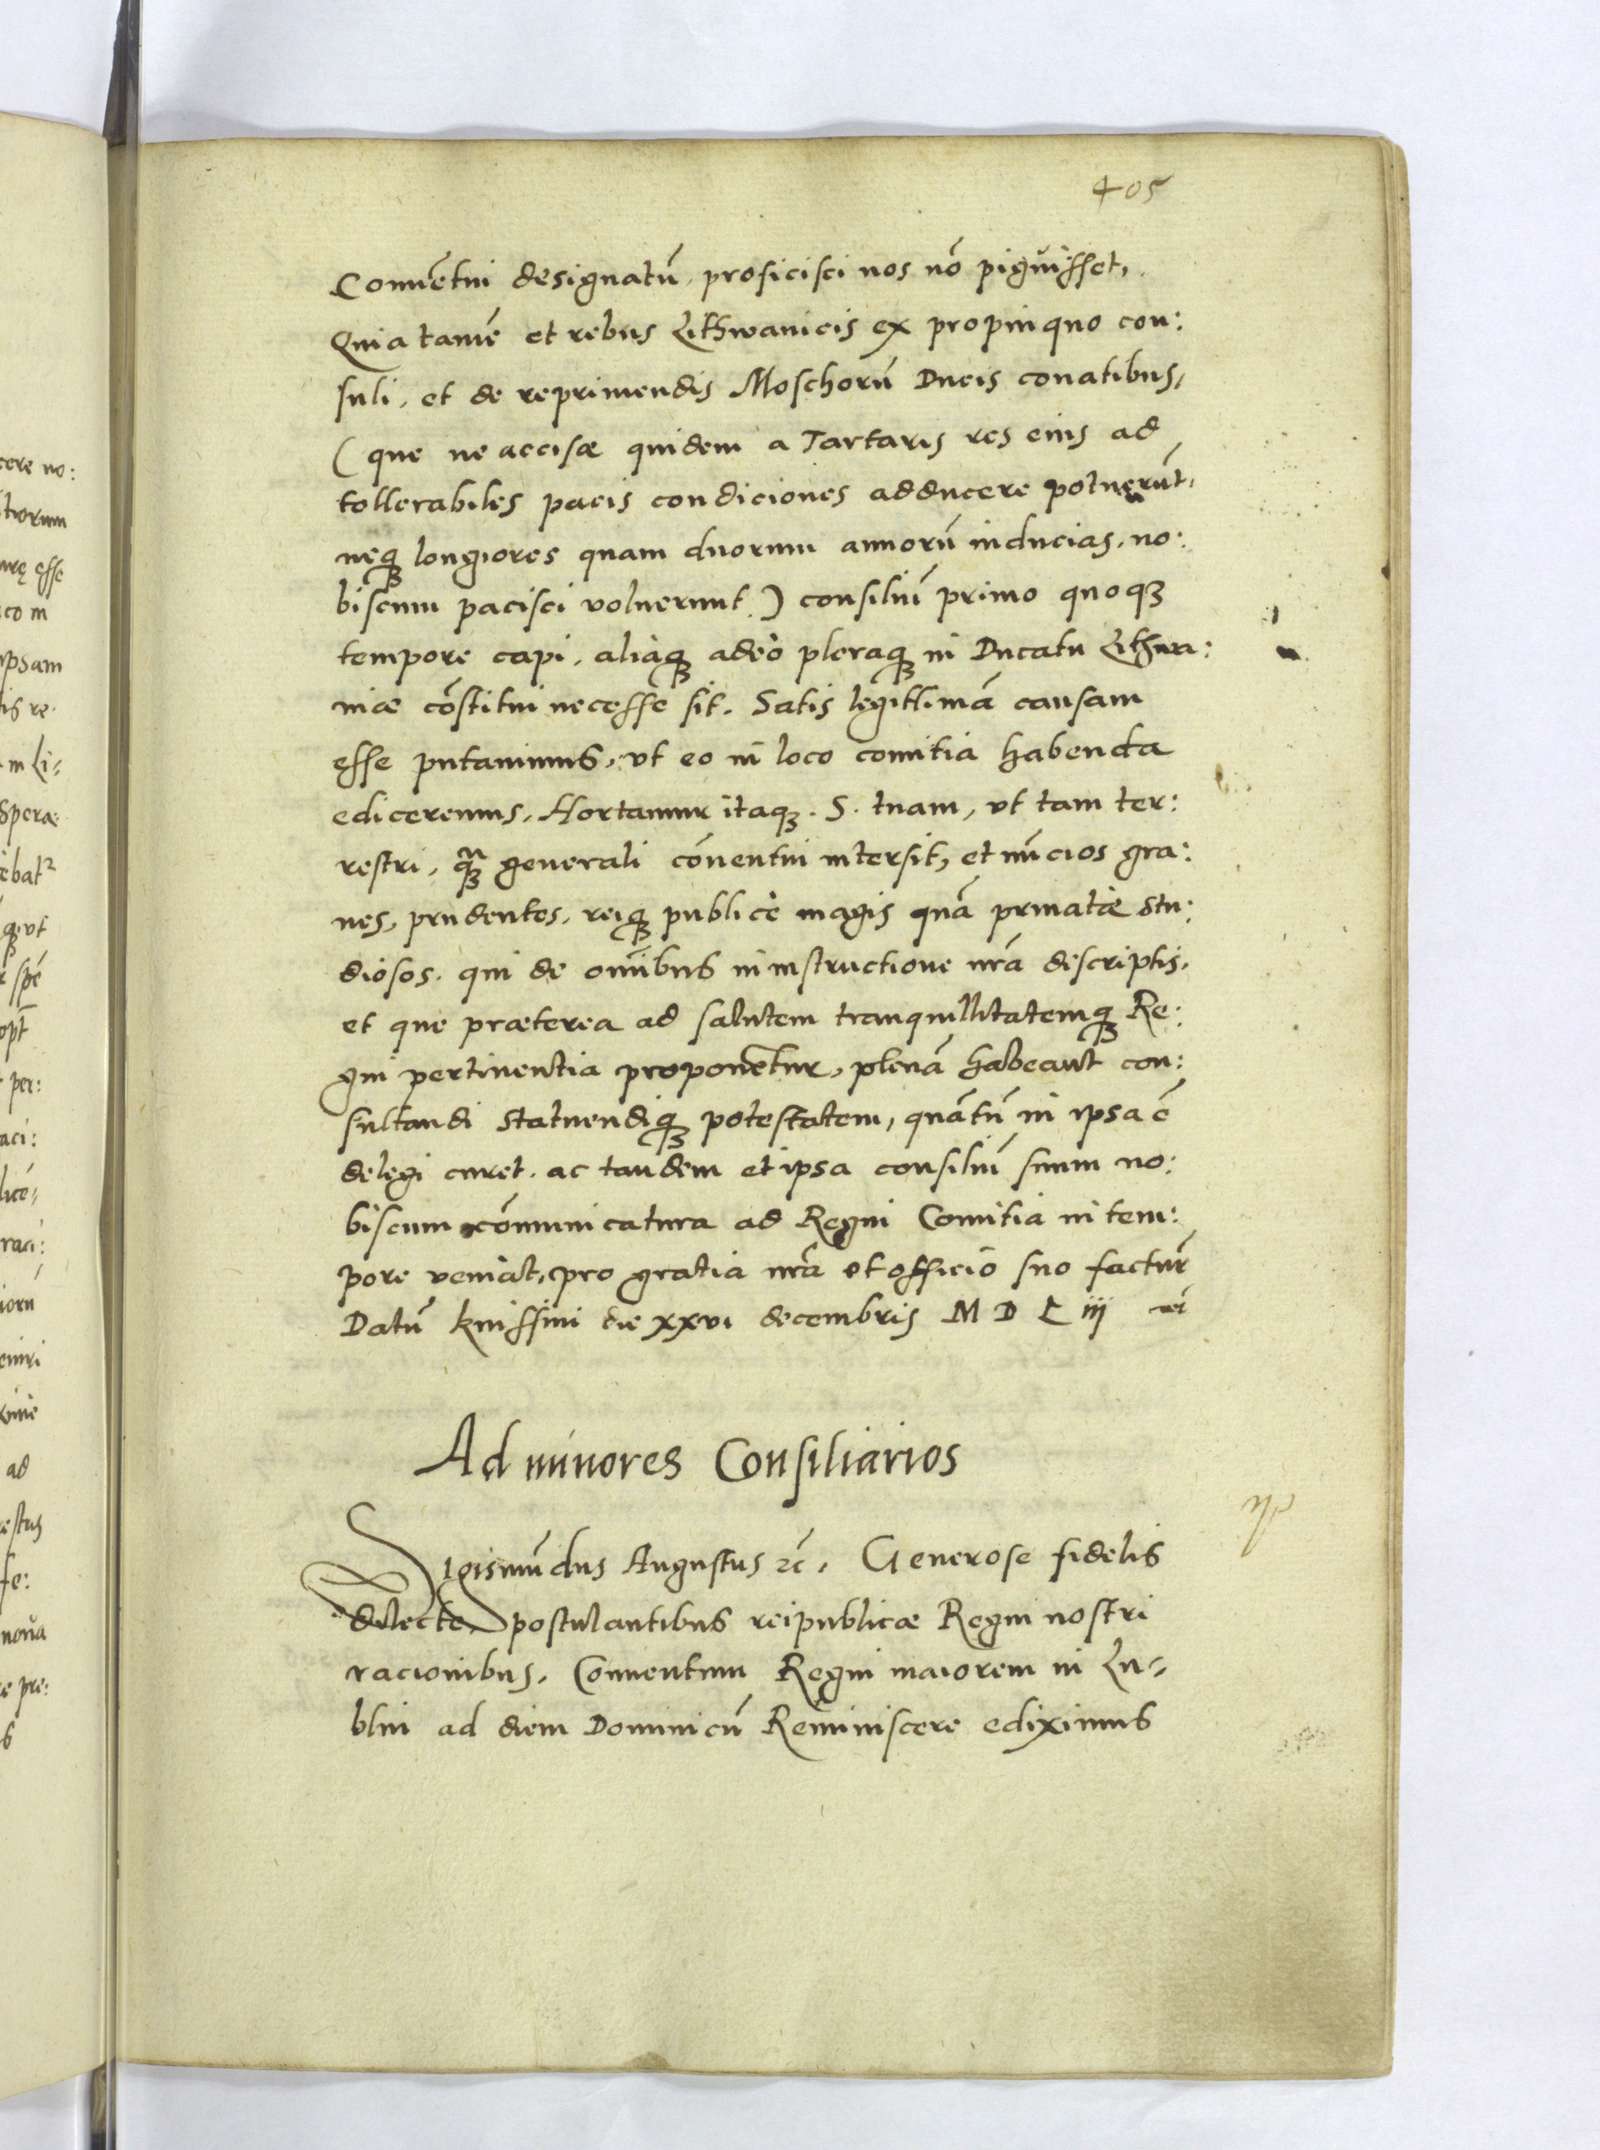 405
Conuētui designatū, proficisci nos nō piguisset,
Quia tamē et rebus Lithwanicis ex propinquo con:
suli, et de reprimendis Moschorū Ducis conatibus,
(que ne accisæ quidem a Tartaris res eius ad
tollerabiles pacis condiciones adducere potuerūt,
neqȝ longiores quam duorum annorū inducias, no:
biscum pacisci voluerunt) consiliū primo quoqȝ
tempore capi, aliàqȝ adeò pleraqȝ in Ducatu Lithua:
niæ cōstitui necesse sit. Satis legittimā causam
esse putauimus, vt eo in loco comitia habenda
ediceremus. Hortamur itaqȝ S. tuam, vt tam ter:
restri, qȝ generali cōuentui intersit, et nūcios gra:
ues, prudentes, reiqȝ publicè magis quā priuatæ stu:
diosos, qui de omībus in instructione nrā descriptis,
et que præterea ad salutem tranquillitatemqȝ Re:
gni pertinentia proponētur, plenā habeant con:
sultandi statuendiqȝ potestatem, quātū in ipsa ē
delegi curet, ac tandem et ipsa consiliū suum no:
biscum cōmunicatura ad Regni Comitia in tem:
pore veniat, pro gratia nrā et officio suo factur̄
Datū Knissini die xxvi decembris M D L iij
Ad minores Consiliarios
Sigismūdus Augustus ꝛc̄. Generose fidelis
dilecte, postulantibus reipublicæ Regni nostri
racionibus, Conuentum Regni maiorem in Lu-
blin ad diem Dominicū Reminiscere ediximus